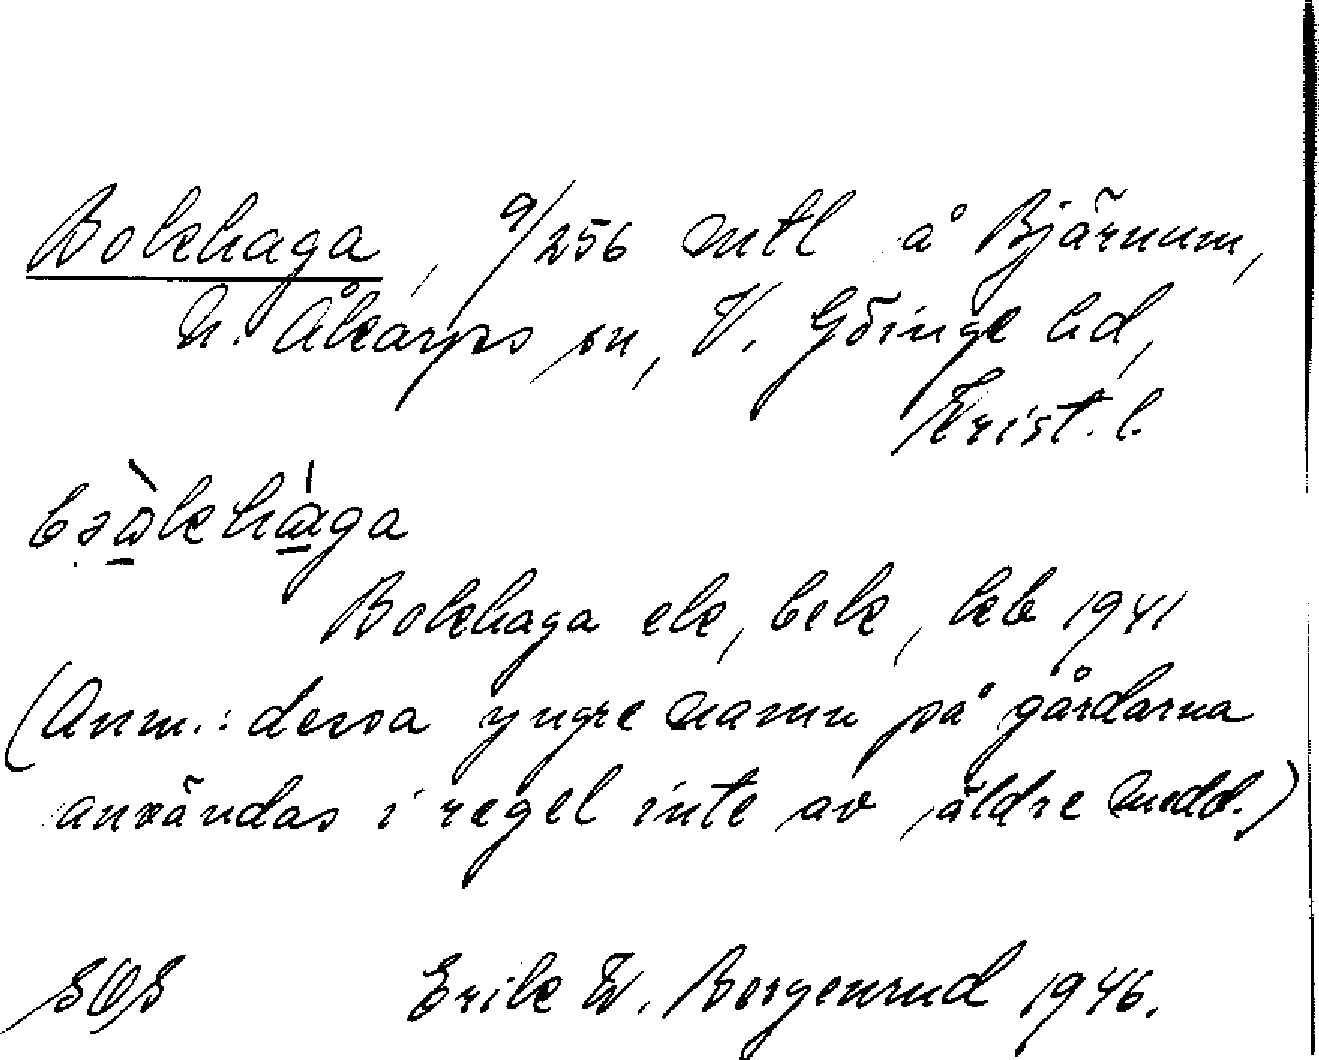 Bokhaga, 9/256 mtl å Bjärnum,
N. Åkarps sn, V. Göinge hd,
Krist. l.
Bokhaga ek, bek, kb 1941
(Anm.: dessa yngre namn på gårdarna
användas i regel inte av äldre medd.)
SOS Erik W. Bergenrud 1946.